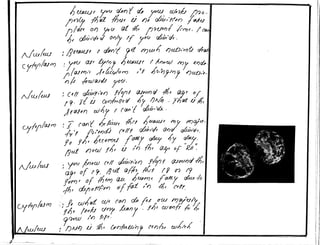 because you don't do your works pro-
perly that thus is no division takes
place on you at the present time. I can
be divided only if you divide.
Nucleus : Because I don't get much nutrients that
Cytoplasm : you are dying because I know my endo
plasmic reticulum is bringing nutrie-
nts towards you.
Nucleus : cell division stops around the age of
19. It is confused by DNA. That is the
reason why I can't divide.
Cytoplasm : I can't believe this because my majo-
ty's friends cells divide and divide.
So she becomes fatty day by day.
But now she is in the age of 20.
Nucleus : you know cell division stops around the
age of 19. But after this 18 or 19
some of them are become fatty due to
the deposition of fat in the cell.
Cytoplasm : So what we can do for our majesty
she looks very leany. She wants to be
grown in
Nucleus : is the controlling centre which